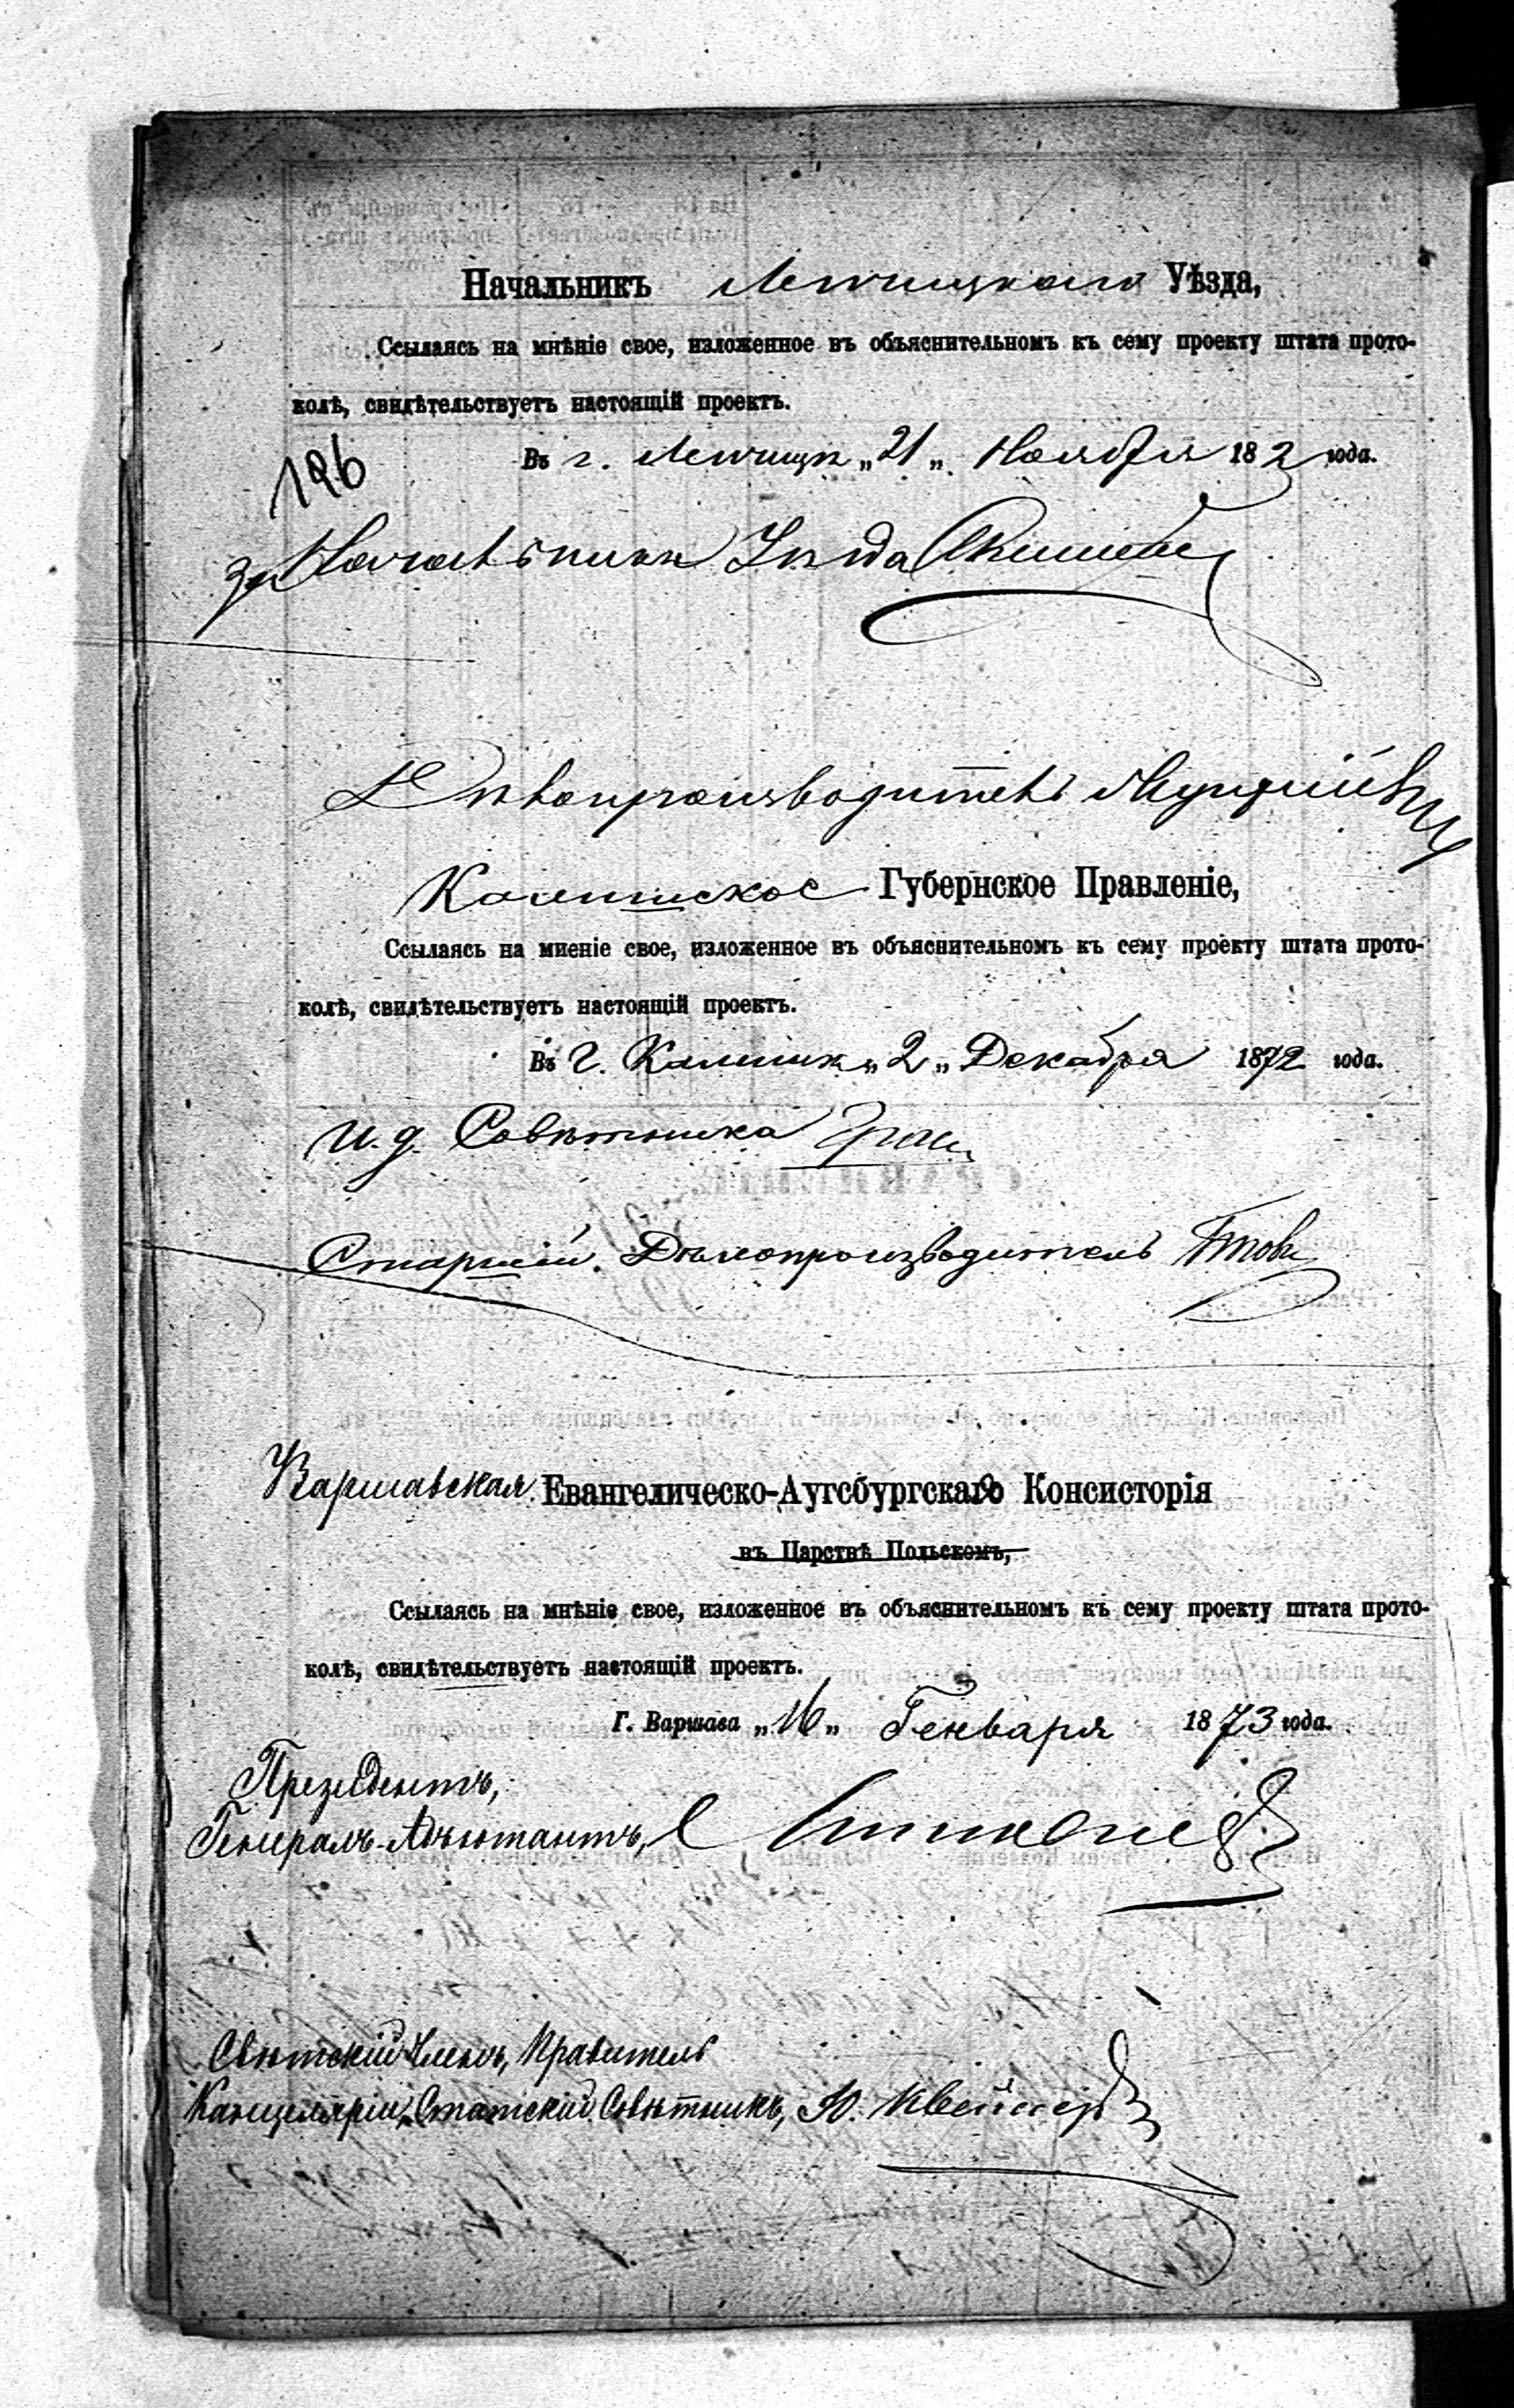 Начальникъ Ленчицкаго Уѣзда,
Ссылаясь на мнѣніе свое, изложенное въ объяснительномъ къ сему проекту штата прото-
колѣ, свидѣтельствуетъ настоящій проектъ.
196
Въ г. Ленчицѣ „21„ Ноября 182 года.
за Начальника Уѣзда
Дѣлопроизводитель
Калишское Губернское Правленіе,
Ссылаясь на миеніе свое, изложенное въ объяснительномъ къ сему проекту штата прото-
колѣ, свидѣтельствуетъ настоящій проектъ.
Въ г. Калишѣ „2„ Декабря 1872 года.
И. д. Совѣтника
Старшій Дѣлопроизводитель
Варшавская Евангелическо-Аугсбургская Консисторія
въ Царствѣ Польскомъ,
Ссылаясь на мнѣніе свое, изложенное въ объяснительномъ къ сему проекту штата прото-
колѣ, свидѣтельствуетъ настоящій проектъ.
Г. Варшава „16„ Генваря 1873 года.
Президентъ,
Генералъ-Адъютантъ,
Свѣтскій Членъ, Правитель
Канцеляріи, Статскій Совѣтникъ, Ю.